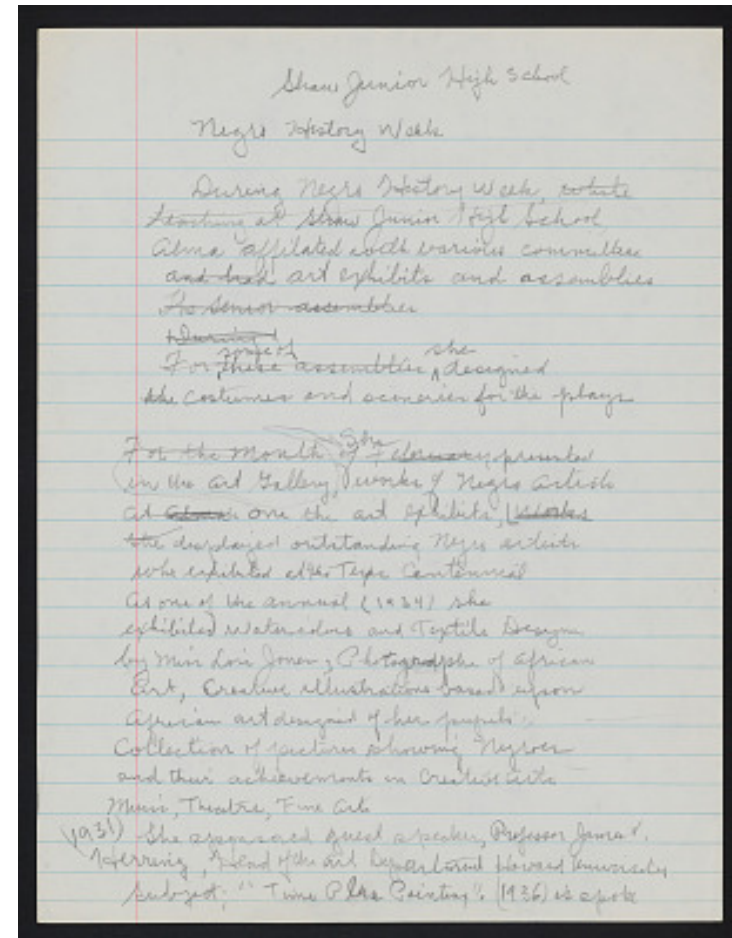 Shaw Junior High School
Negro History Week
During Negro History Week, while
teaching at Shaw Junior High School
Alma affilated with various committee
and had art exhibits and assemblies
The senior assemblies
During
some of she
For these assemblies, designed
the costumes and sceneries for the plays
She
For the Month of February, presented
in the art Gallery, works of Negro artists
At one the art exhibits,
She displayed outstanding Negro artists
who exhibited at the Texas Centennial
As one of the annual (1934) she
exhibited watercolors and Textile Designs
by Miss Lois Jones, Photographs of African
Art, Creative illustrations based upon
African art designed of her pupils.
Collection of pictures showing Negroes
and their achievements in Creative arts
Music, Theatre, Fine Arts
(1931) She sponsored guest speaker, Professor James V.
Herring, Head of the art Department Howard University
Subject, " Time Painting". (1936) is spoke